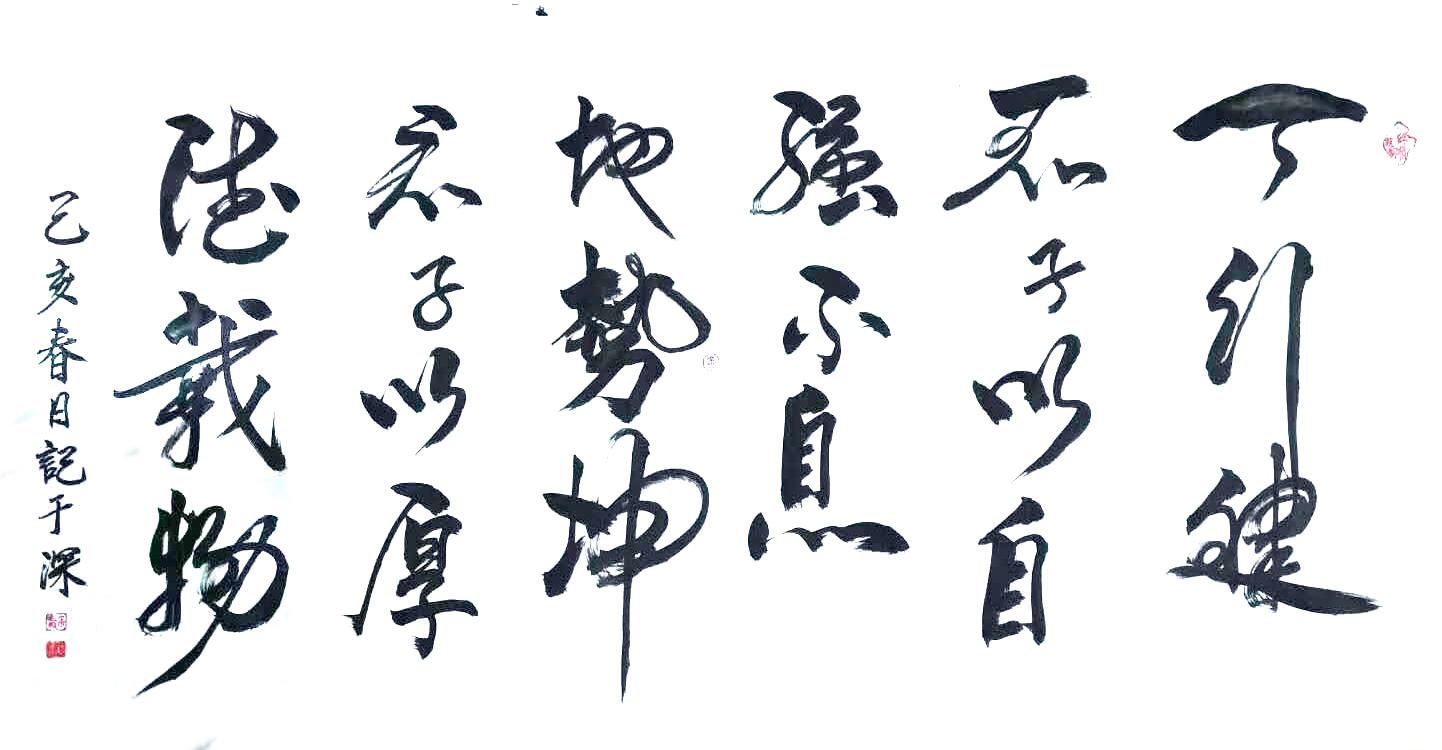 天行健
君子以自
强不息
地勢坤
君子以厚
德載物
己亥春日記于深